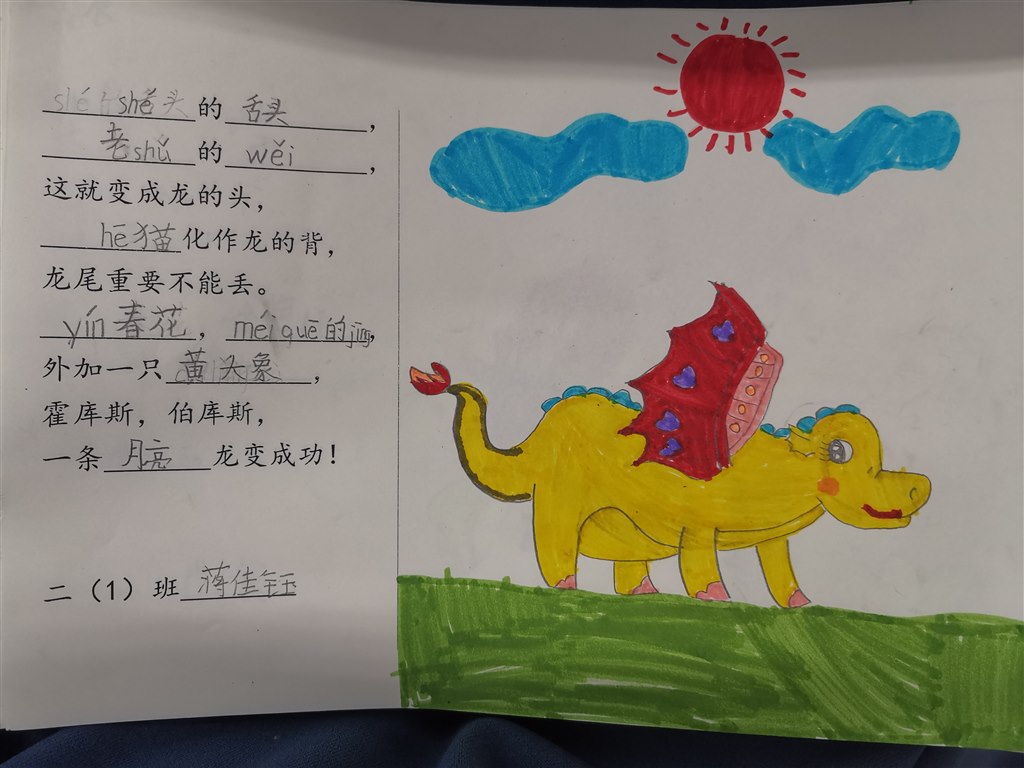 shé shé头的舌头，
老shǔ的wěi，
这就变成龙的头，
hē猫化作龙的背，
龙尾重要不能丢。
yín春花，méi quē的jīng，
外加一只黄大象，
霍库斯，伯库斯，
一条月亮龙变成功！
二（1）班蒋佳钰